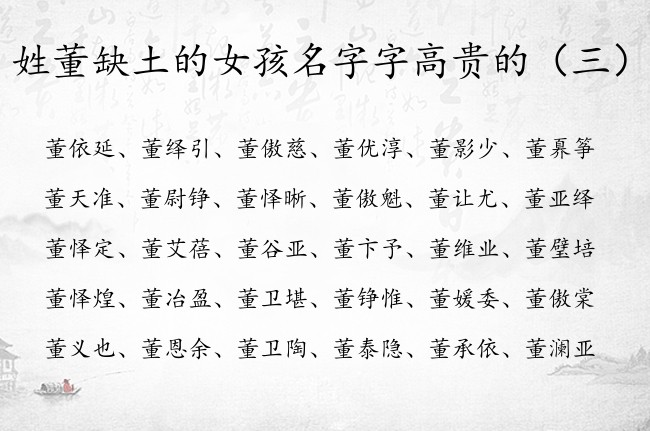 姓董缺土的女孩名字字高贵的（三）
董依延、董绎引、董傲慈、董优淳、董影少、董奡筝
董天准、董尉铮、董怿晰、董傲魁、董让尤、董亚绎
董怿定、董艾蓓、董谷亚、董卞予、董维业、董璧培
董怿煌、董冶盈、董卫堪、董铮惟、董媛委、董傲棠
董义也、董恩余、董卫陶、董泰隐、董承依、董澜亚